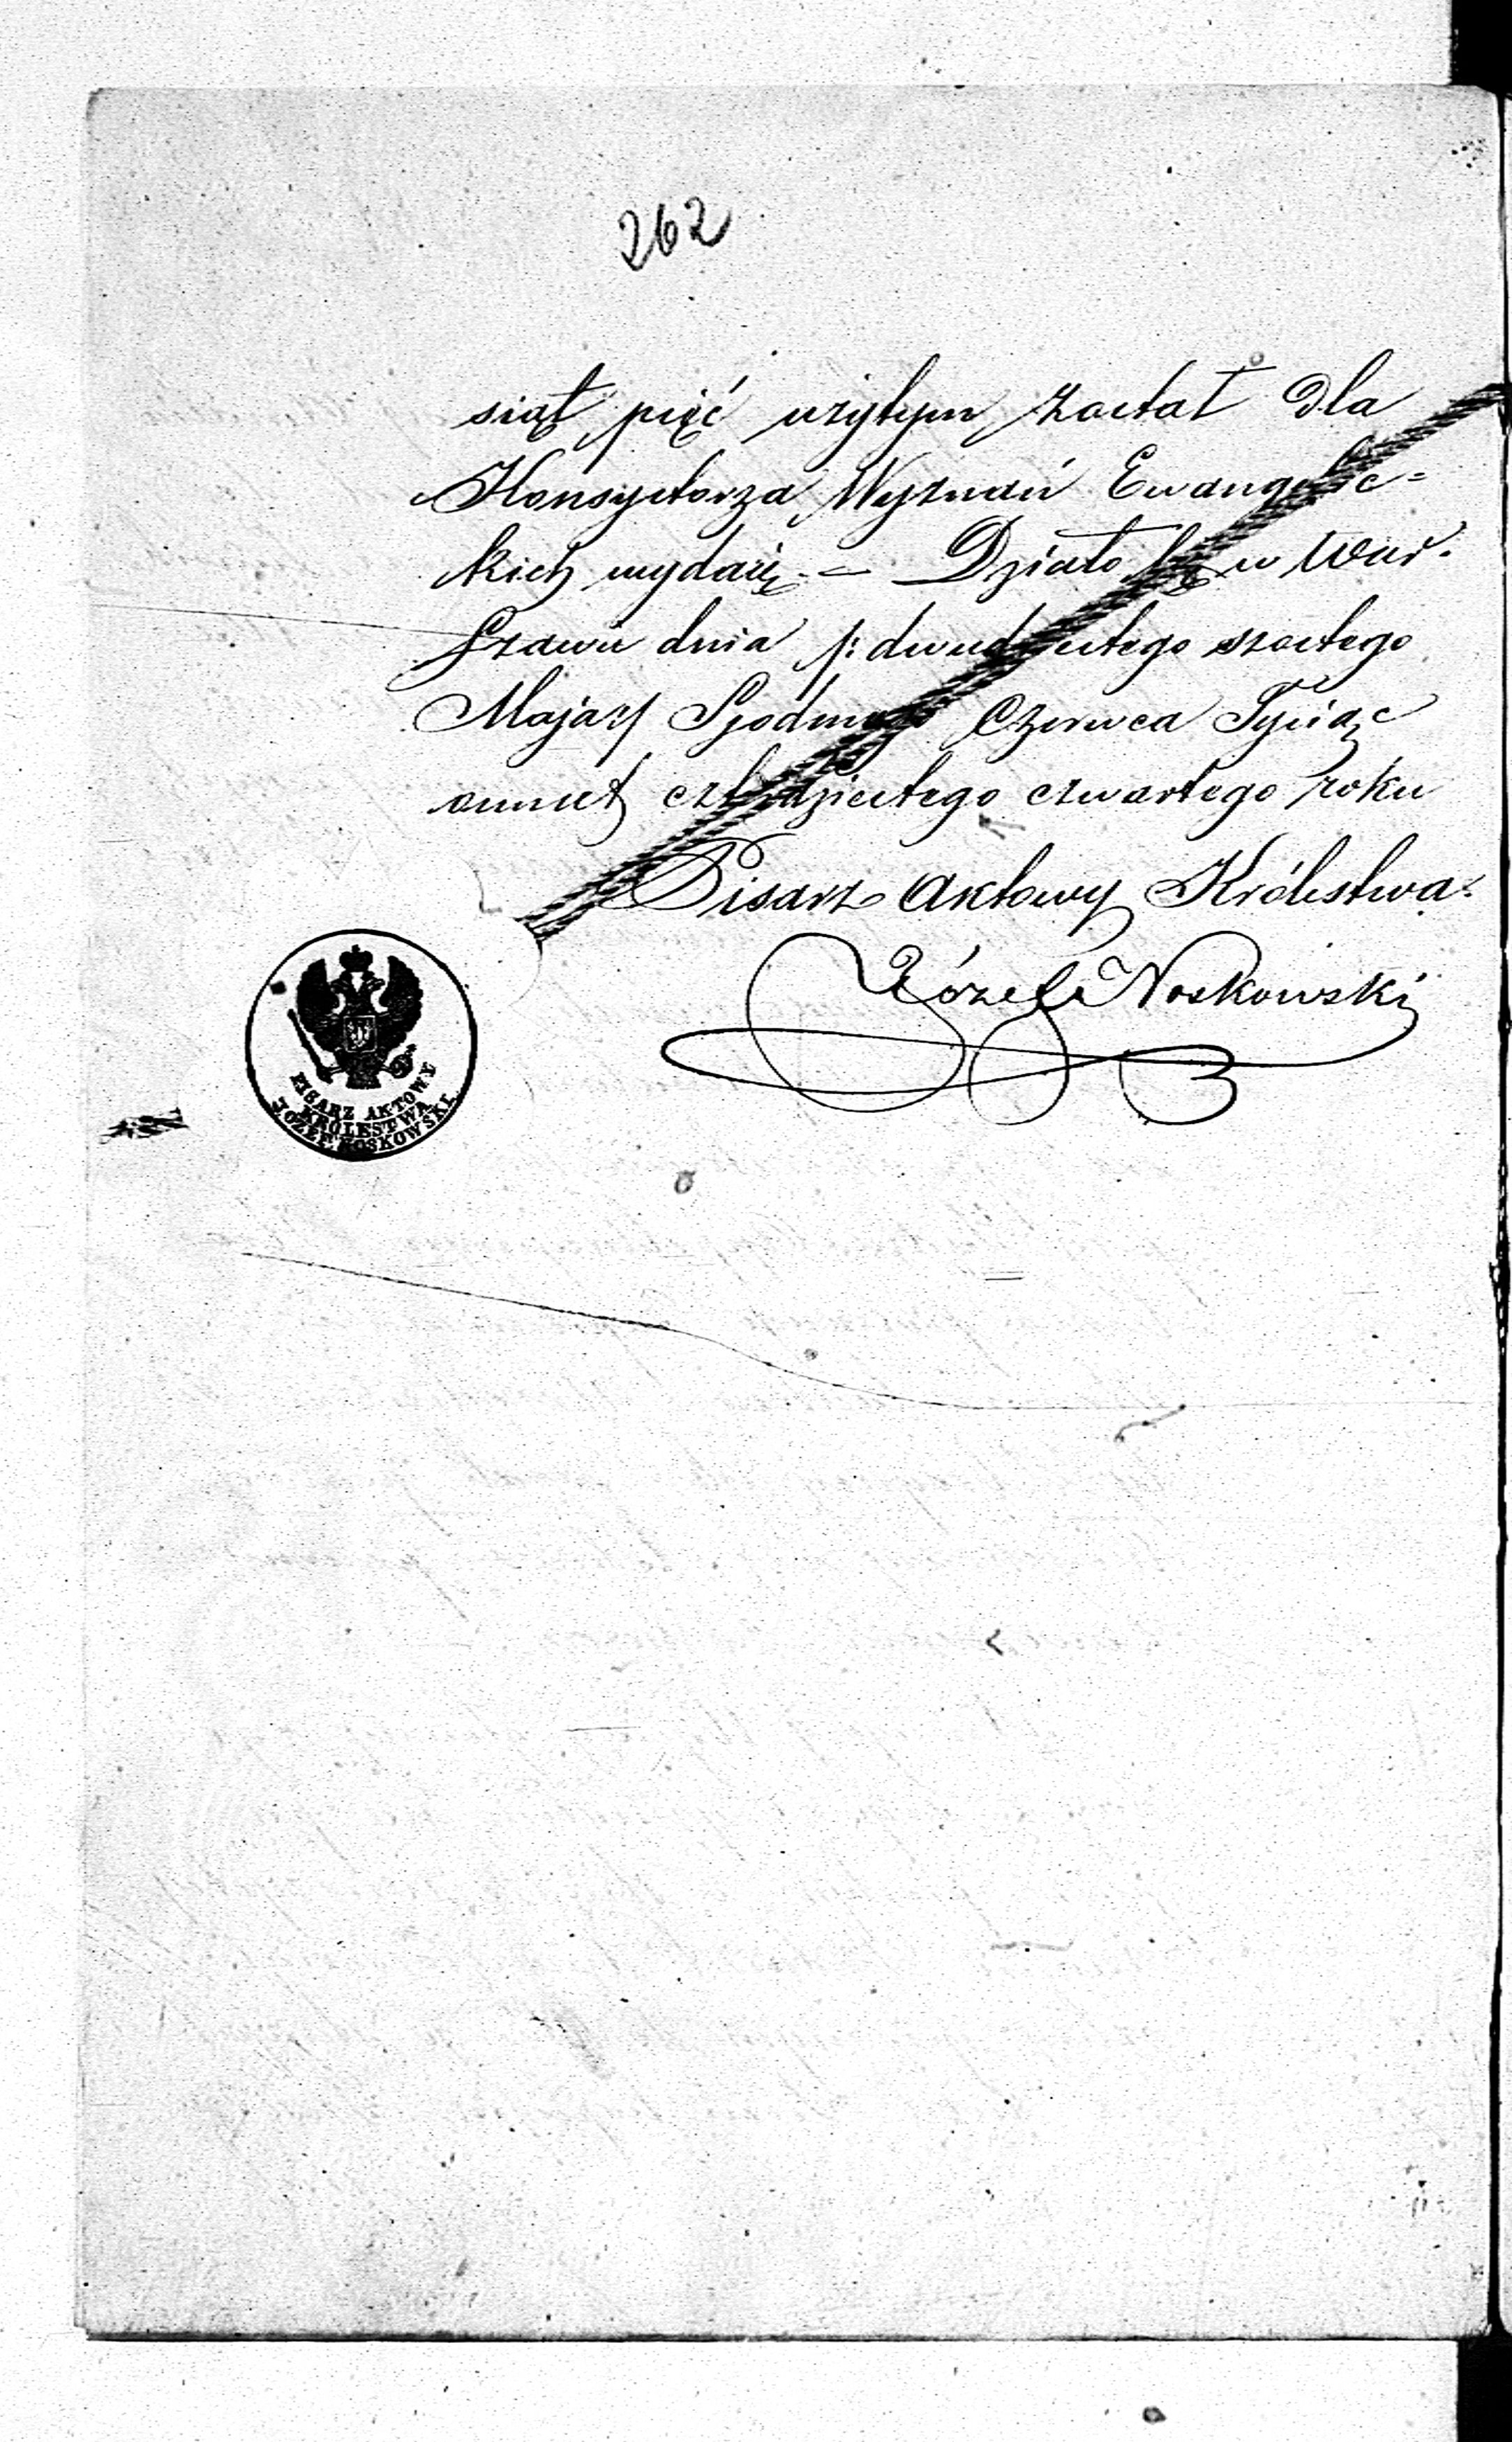 262
siąt pięć użytym został dla
Konsystorza Wyznań Ewangelic=
kich wydaię. — Działo się w War-
szawie dnia /: dwudziestego szóstego
Maja :/ Siódmego Czerwca Tysiąc
ośmset czterdziestego czwartego roku
Pisarz Aktowy Królestwa.
Józef Noskowski
PISARZ AKTOWY
KRÓLESTWA
JÓZEF NOSKOWSKI